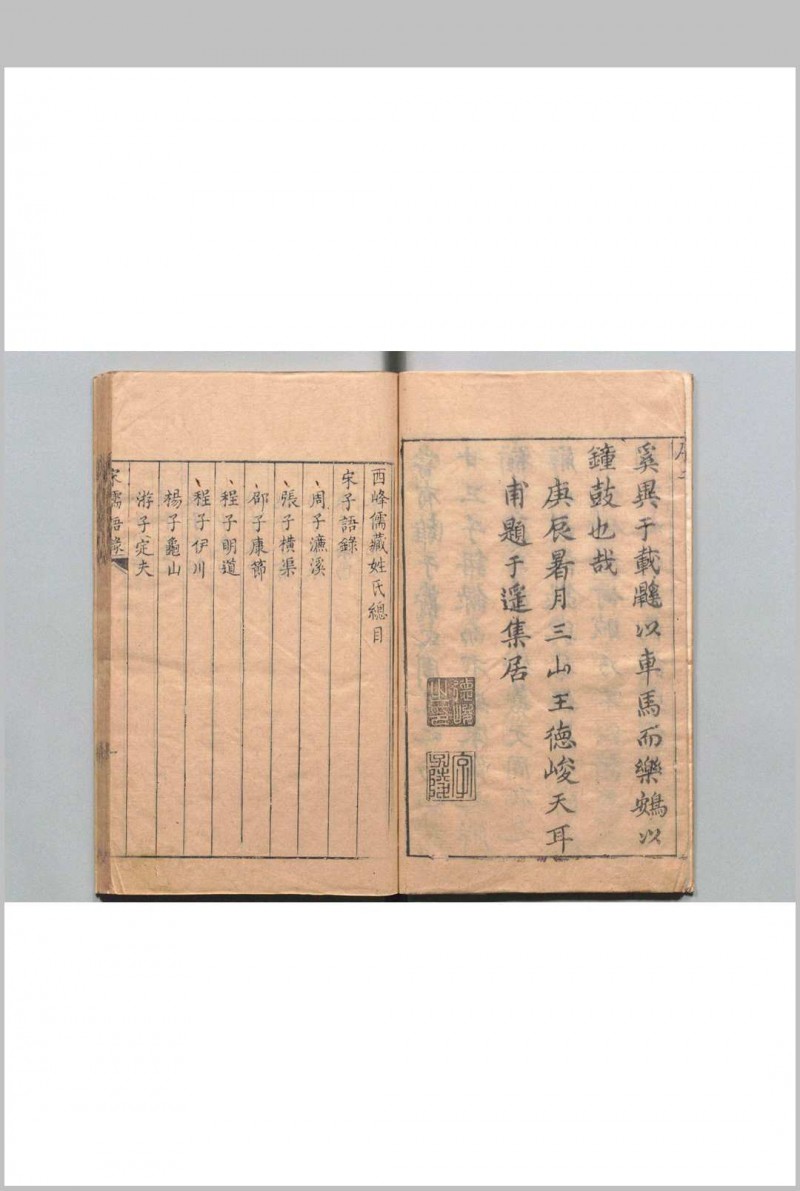 奚異于載鼷以車馬而樂鴳以
鐘鼓也哉
庚辰暑月三山王德峻天耳
甫題于遥集居
德峻
西峰儒藏姓氏總目
宋子語錄
周子濂溪
張子橫渠
邵子康節
程子明道
程子伊川
楊子龜山
游子定夫
宋儒語錄